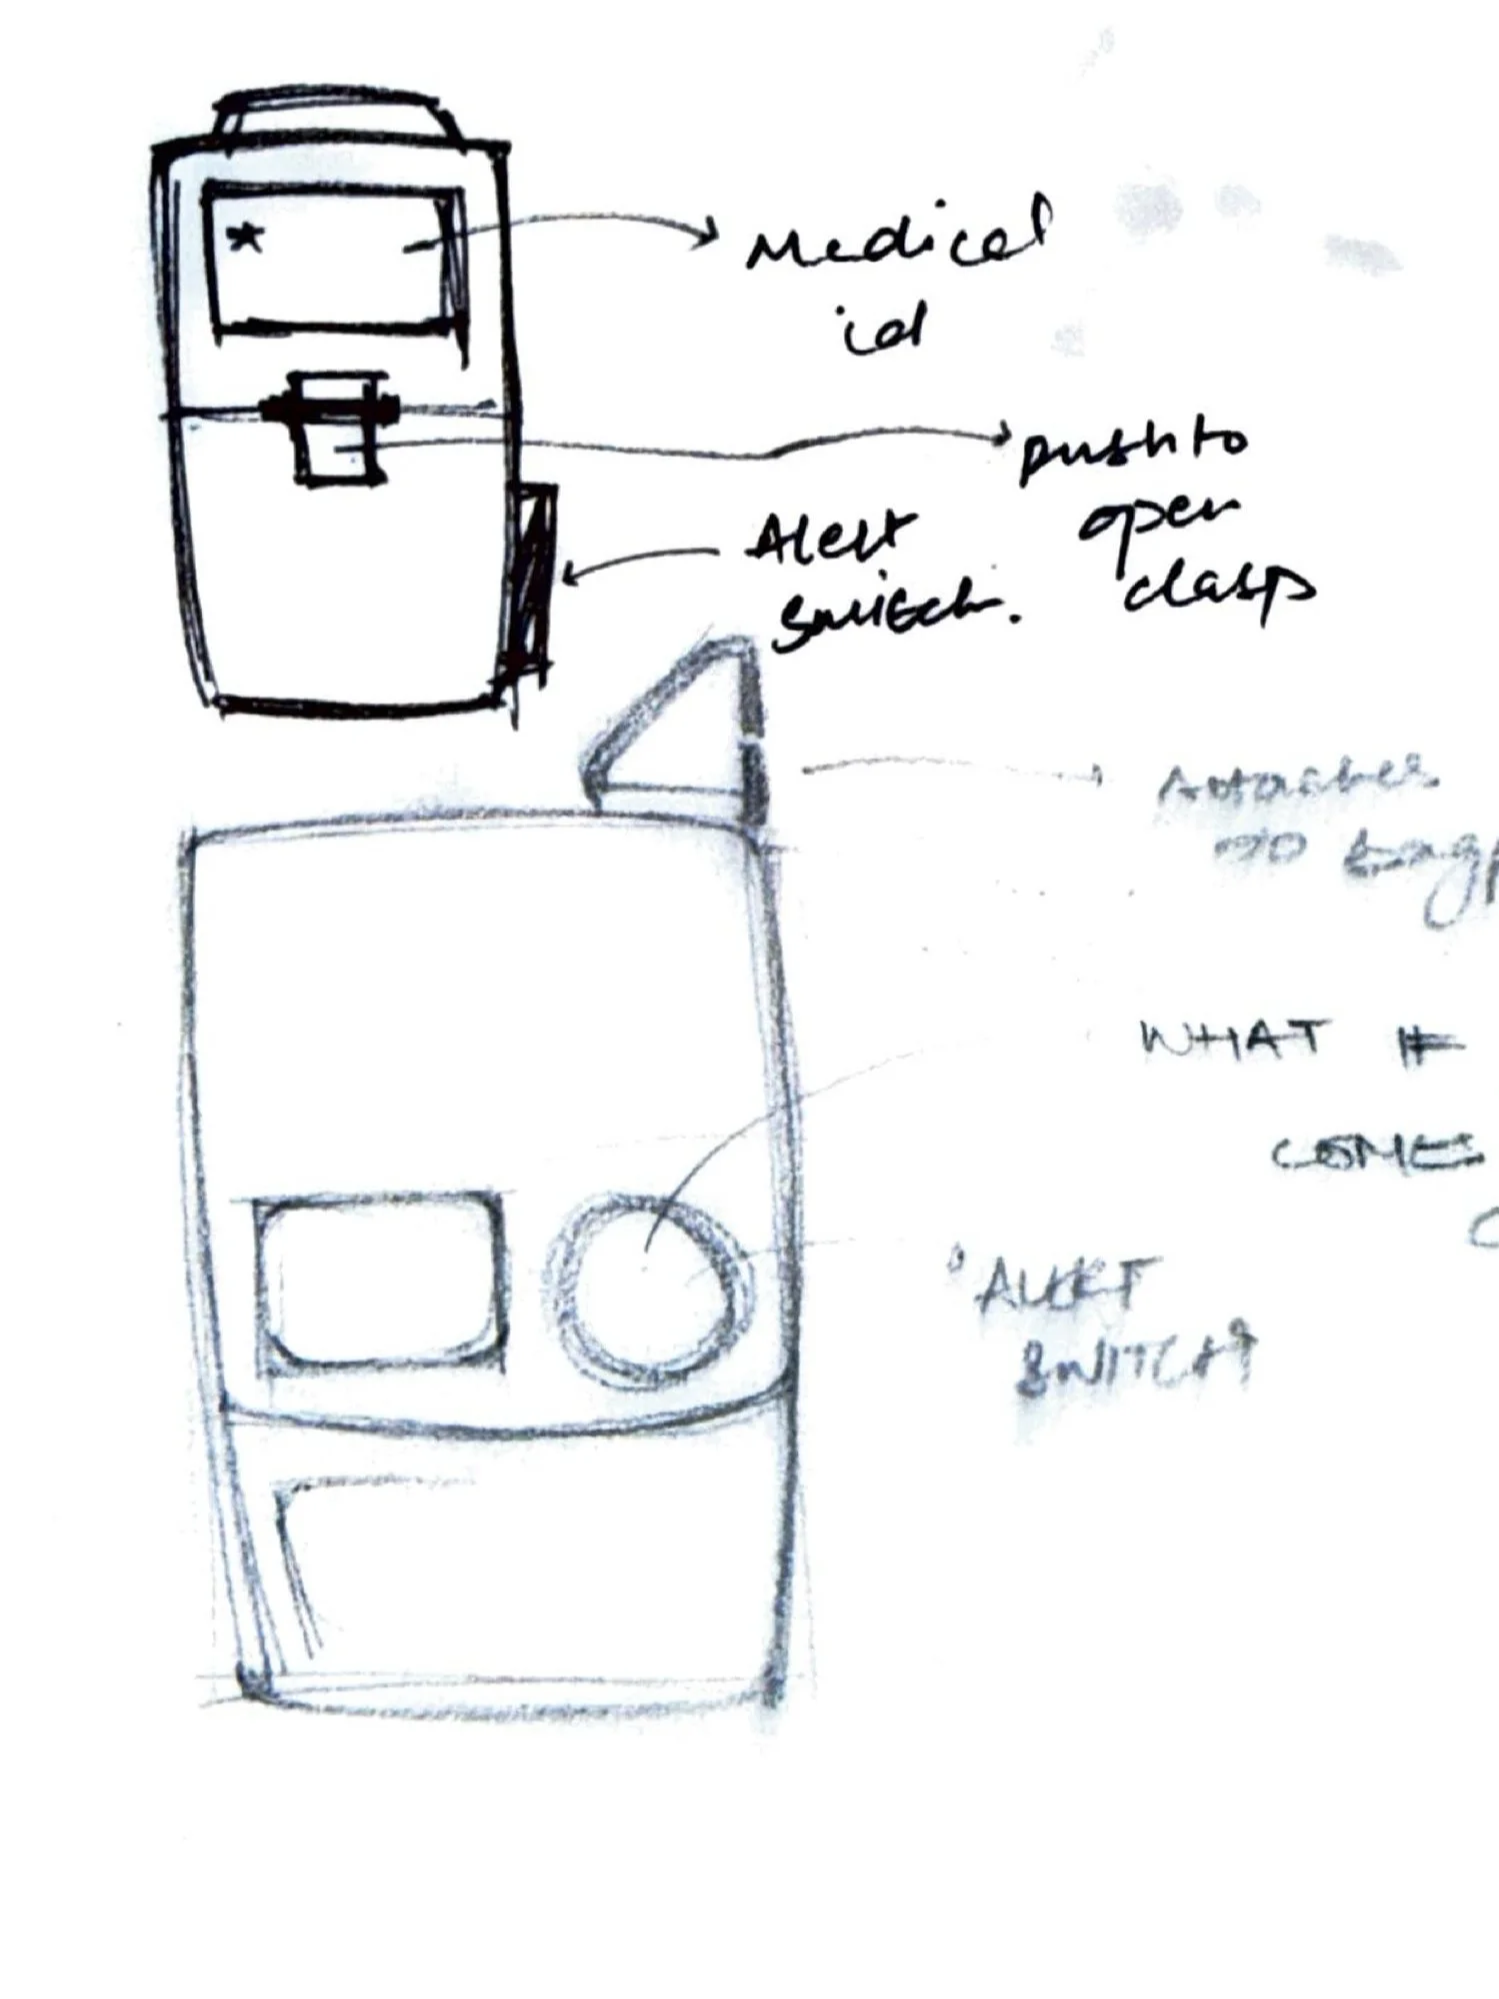 Medical
id
push to
open
clasp
Alert
switch.
Attaches
to
WHAT IF
COMES
ALERT
SWITCH?